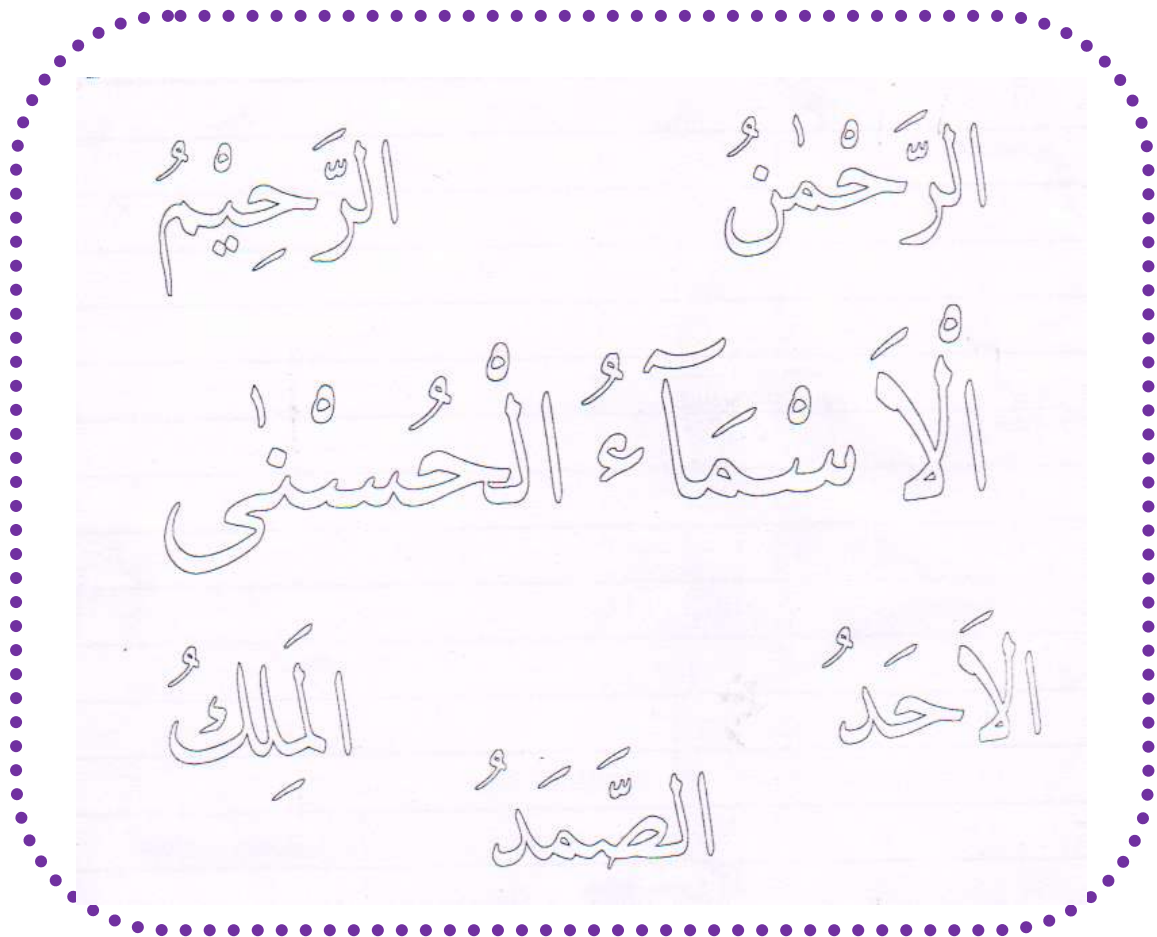 الرَّحْمٰنُ الرَّحِيْمُ
الْاَسْمَآءُ الْحُسْنٰى
الاَحَدُ المَلِكُ
الصَّمَدُ